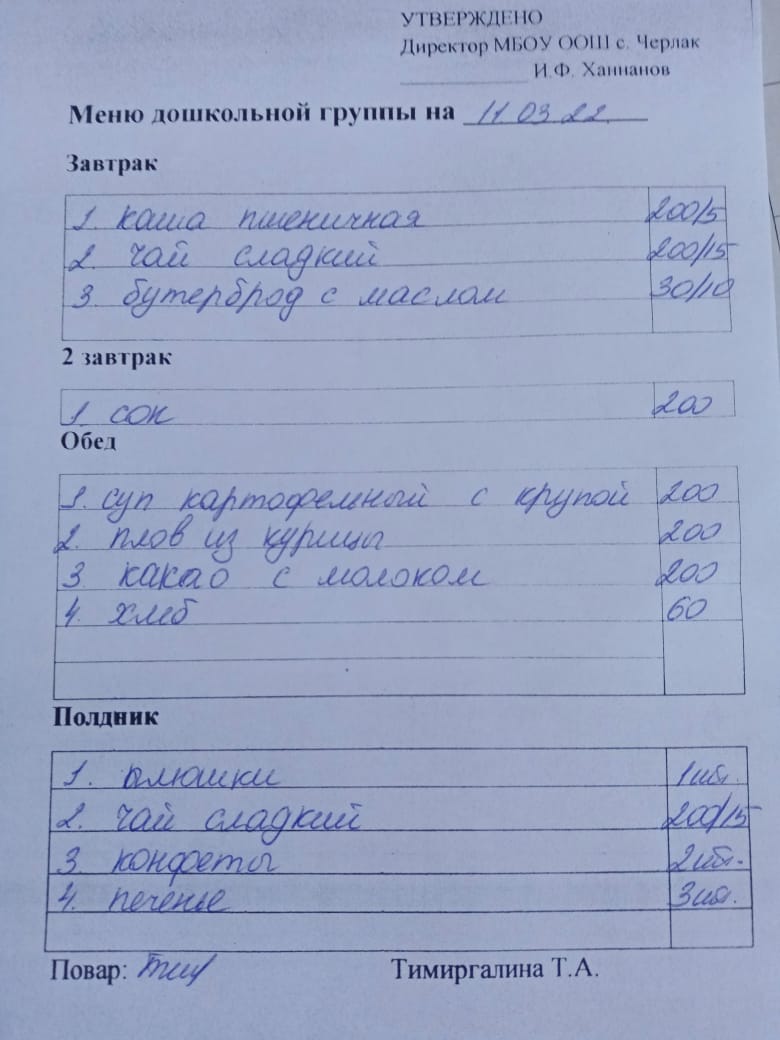 УТВЕРЖДЕНО
Директор МБОУ ООШ с. Черлак
И.Ф. Ханнанов
Меню дошкольной группы на 11 03 22.
Завтрак
1. каша пшеничная 200/5
2. чай сладкий 200/15
3. бутерброд с маслом 30/10
2 завтрак
1. сок 200
Обед
1. суп картофельный с крупой 200
2. плов из курицы 200
3. какао с молоком 200
4. хлеб 60
Полдник
1. плюшки 1шт.
2. чай сладкий 200/15
3. конфеты 2шт.
4. печенье 3шт.
Повар: Тимиргалина Т.А.